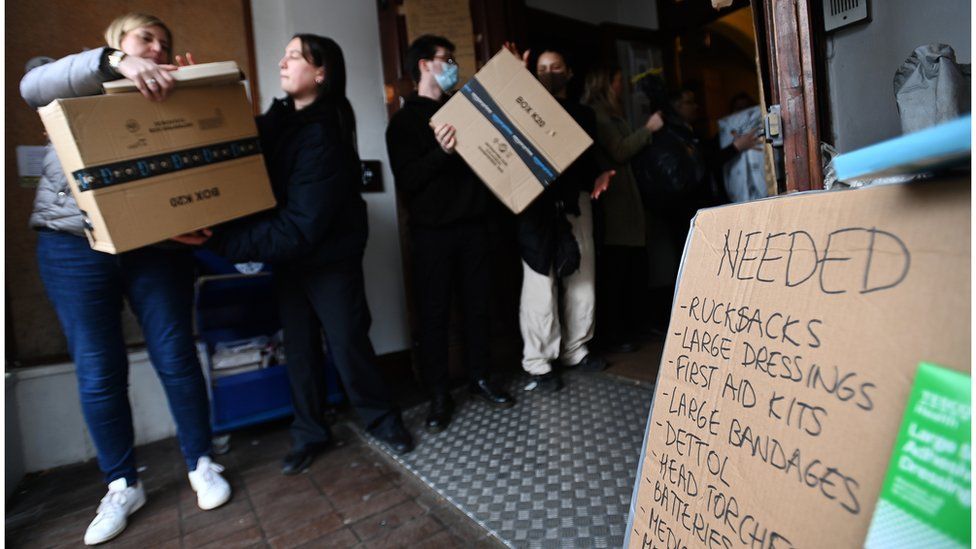 BOX K2D
BOX K2D
NEEDED
- RUCKSACKS
- LARGE DRESSINGS
- FIRST AID KITS
- LARGE BANDAGES
- DETTOL
- HEAD TORCHE
- BATTERIES
TESCO
Health
Large
Dressing